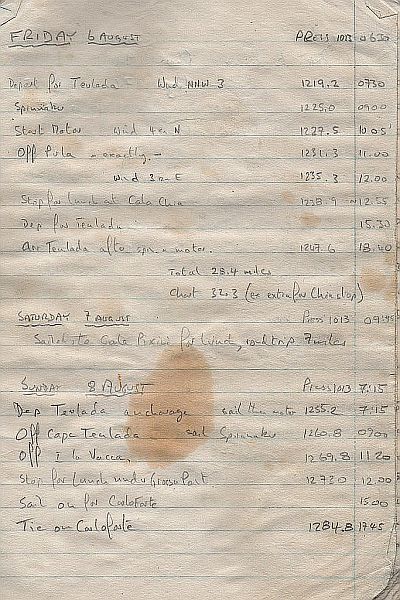 FRIDAY 6 AUGUST PRESS 1013 0630
Depart for Teulada - Wind NNW 3 1219.2 0730
Spinnaker 1225.0 0900
Start Motor Wind N 1227.5 10.05
Off Pula - exactly - 1231.3 11.00
Wind E 1235.3 12.00
Stop for Lunch at Cala Chia 1238.9 12.55
Dep for Teulada 15.30
Arr Teulada after motor. 1247.6 18.40
Total 28.4 miles
Chart 32.3 (ex extra for Chia stop)
SATURDAY 7 AUGUST Press 1013 09
Sailed to Cala for lunch, round trip 7 miles
SUNDAY 8 AUGUST Press 1013 7:15
Dep Teulada anchorage sail then motor 1255.2 7:15
Off Cape Teulada - sail Spinnaker 1260.8 0900
Off I la Vacca. 1269.8 1120
Stop for lunch under 1273.0 12.00
Sail on for Carloforte 1500
Tie on Carloforte 1284.8 1745